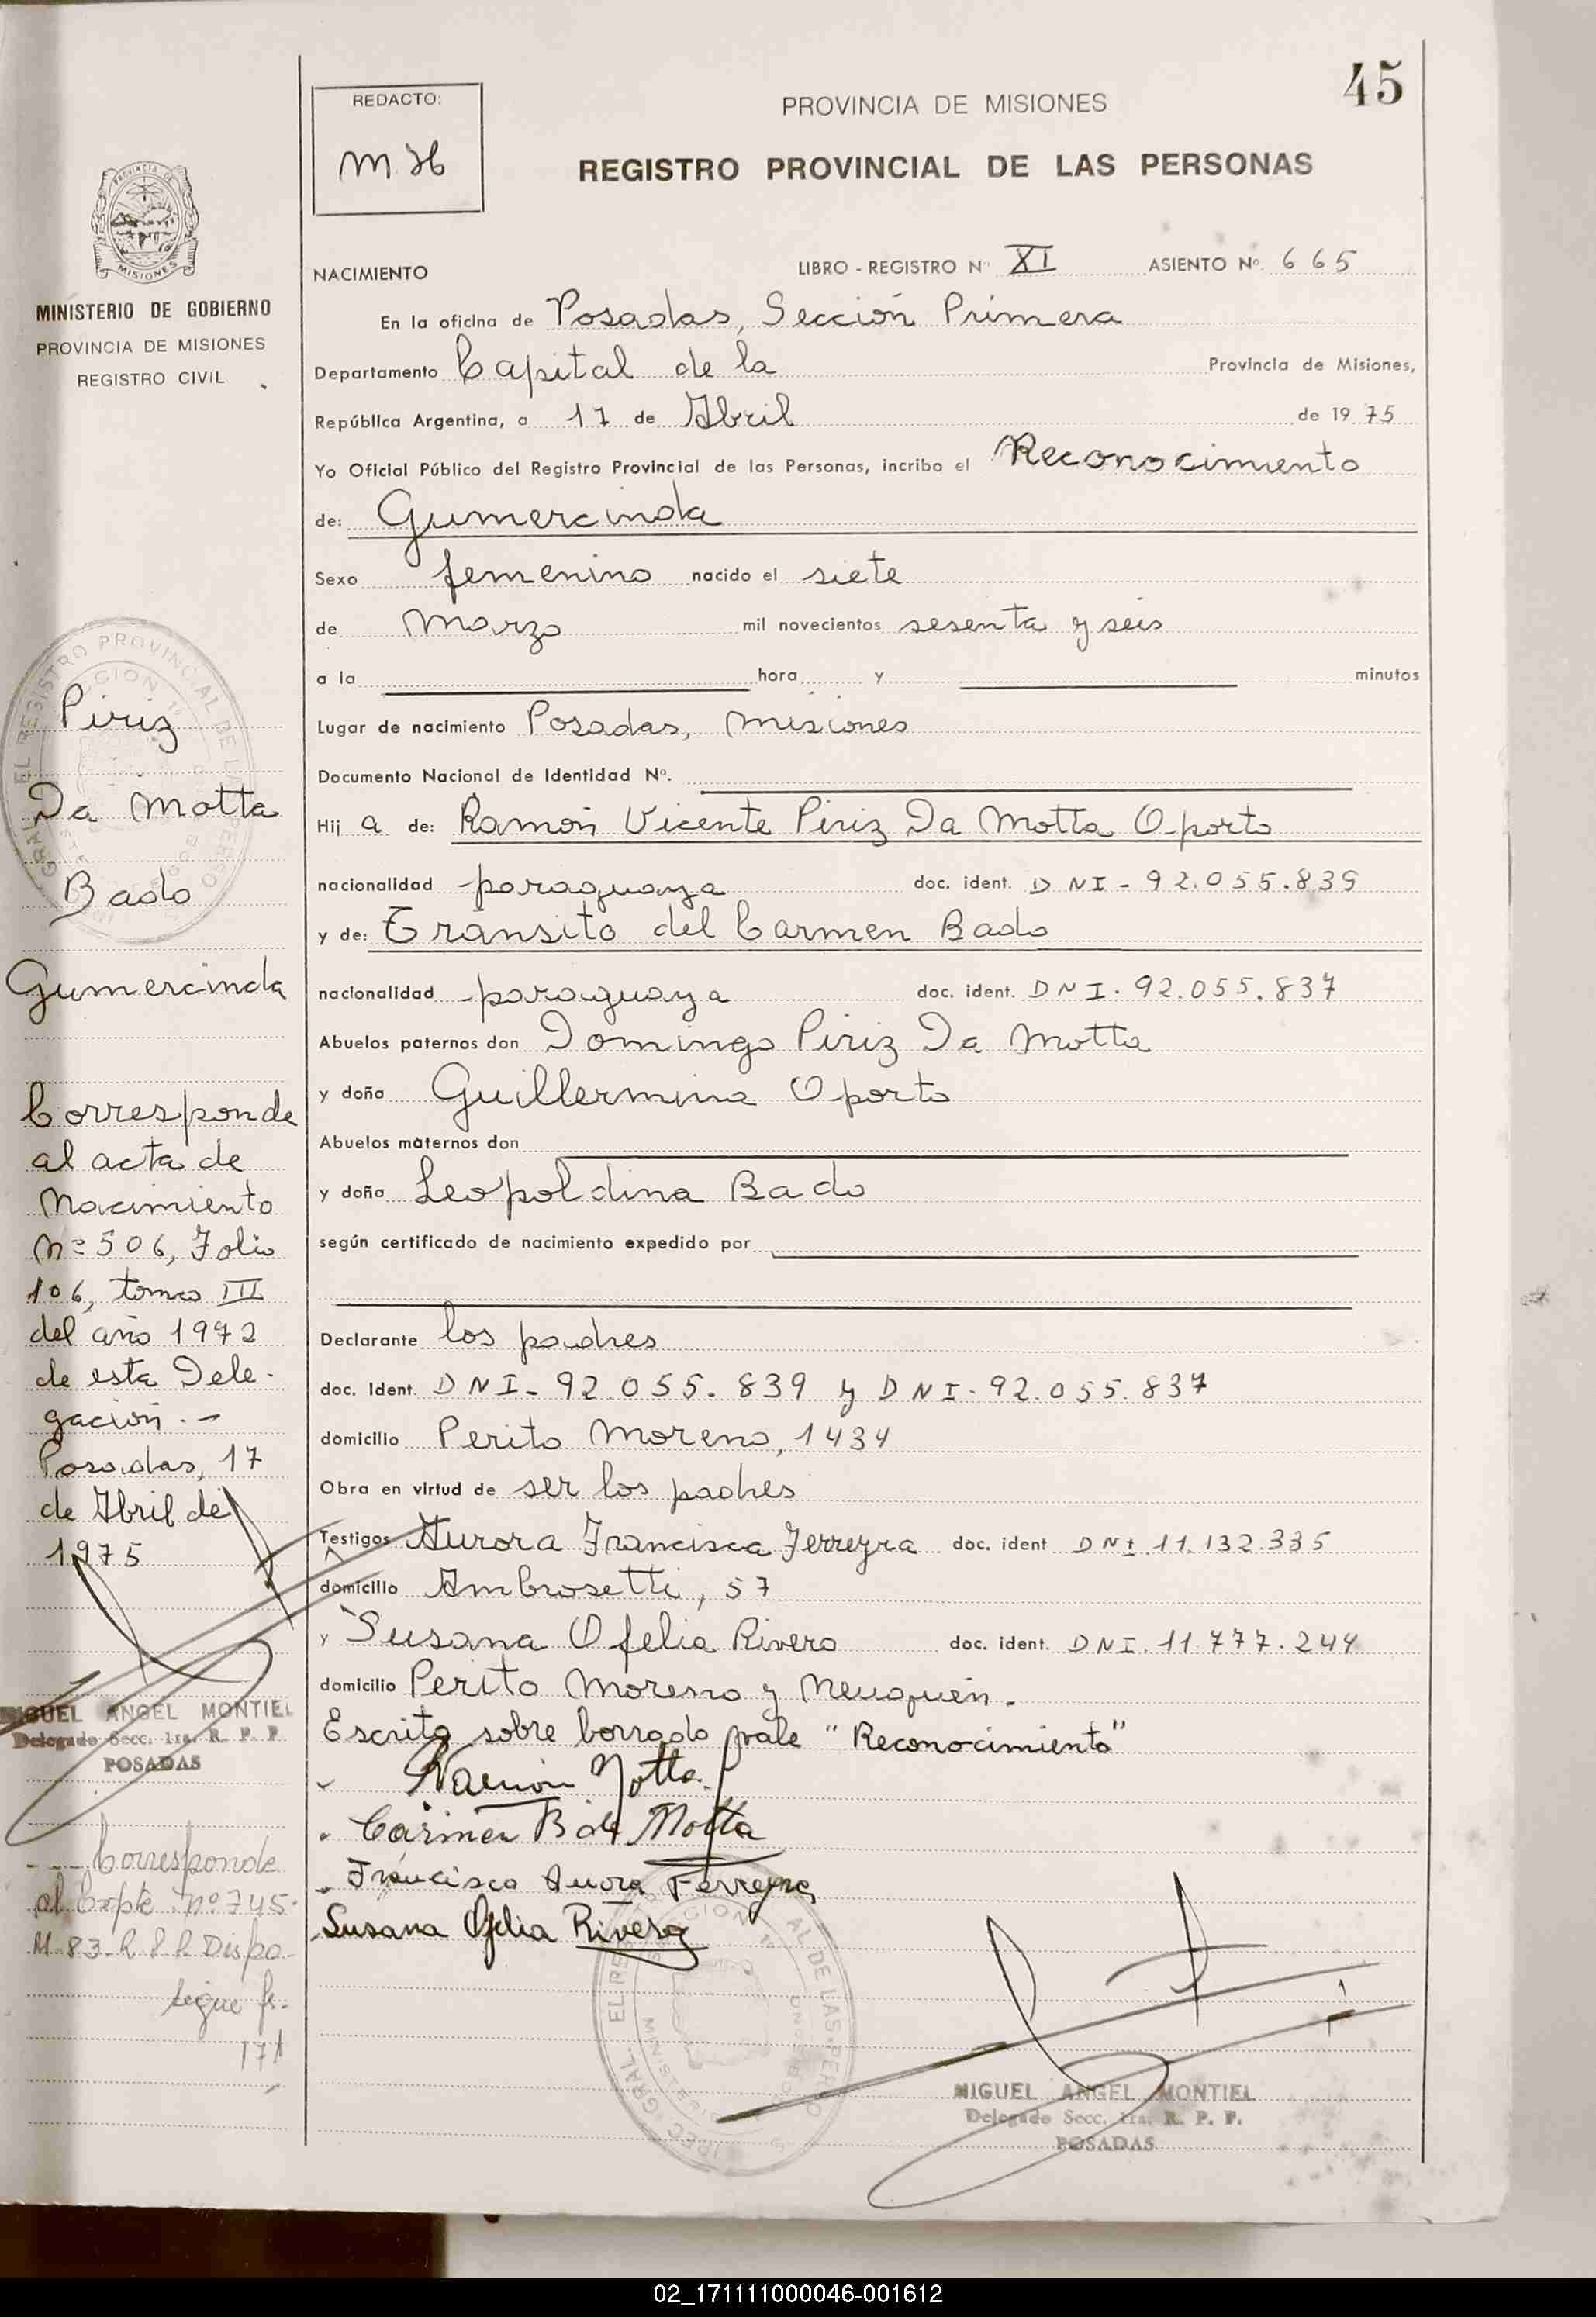 45
REDACTO:
MH
PROVINCIA DE MISIONES
REGISTRO PROVINCIAL DE LAS PERSONAS
MISIONES
MINISTERIO DE GOBIERNO
PROVINCIA DE MISIONES
REGISTRO CIVIL
NACIMIENTO LIBRO - REGISTRO Nº XI ASIENTO Nº 665
En la oficina de Posadas, Sección Primera
Departamento Capital de la Provincia de Misiones,
República Argentina, a 17 de Abril de 1975
Yo Oficial Público del Registro Provincial de las Personas, incribo el Reconocimiento
de: Gumercinda
Sexo femenino nacido el siete
de Marzo mil novecientos sesenta y seis
a la hora y minutos
Lugar de nacimiento Posadas, Misiones
Documento Nacional de Identidad Nº.
Hij a de: Ramón Vicente Piriz Da Motta Oporto
nacionalidad paraguaya doc. ident. DNI - 92.055.839
y de: Tránsito del Carmen Bado
nacionalidad paraguaya doc. ident. DNI. 92.055.837
Abuelos paternos don Domingo Piriz Da Motta
y doña Guillermina Oporto
Abuelos maternos don
y doña Leopoldina Bado
según certificado de nacimiento expedido por
Declarante los padres
doc. Ident. DNI - 92.055.839 y DNI. 92.055.837
domicilio Perito Moreno, 1434
Obra en virtud de ser los padres
Testigos Aurora Francisca Ferreyra doc. ident DNI 11.132.335
domicilio Ambrosetti, 57
y Susana Ofelia Rivero doc. ident. DNI. 11.777.244
domicilio Perito Moreno y Neuquén.
Escrito sobre borrado vale "Reconocimiento"
Ramón Motta
Carmen B de Motta
Francisca Aurora Ferreyra
Susana Ofelia Rivero
MIGUEL ANGEL MONTIEL
Delegado Secc. 1ra. R. P. P.
POSADAS
Piriz
Da Motta
Bado
Gumercinda
Corresponde
al acta de
Nacimiento
Nº 506, Folio
106, tomo III
del año 1972
de esta Dele-
gación.-
Posadas, 17
de Abril de
1975
MIGUEL ANGEL MONTIEL
Delegado Secc. 1ra. R. P. P.
POSADAS
Corresponde
al Expte. nº 745-
M-83-R P P. Dispo.
sigue fs.
171
02_171111000046-001612